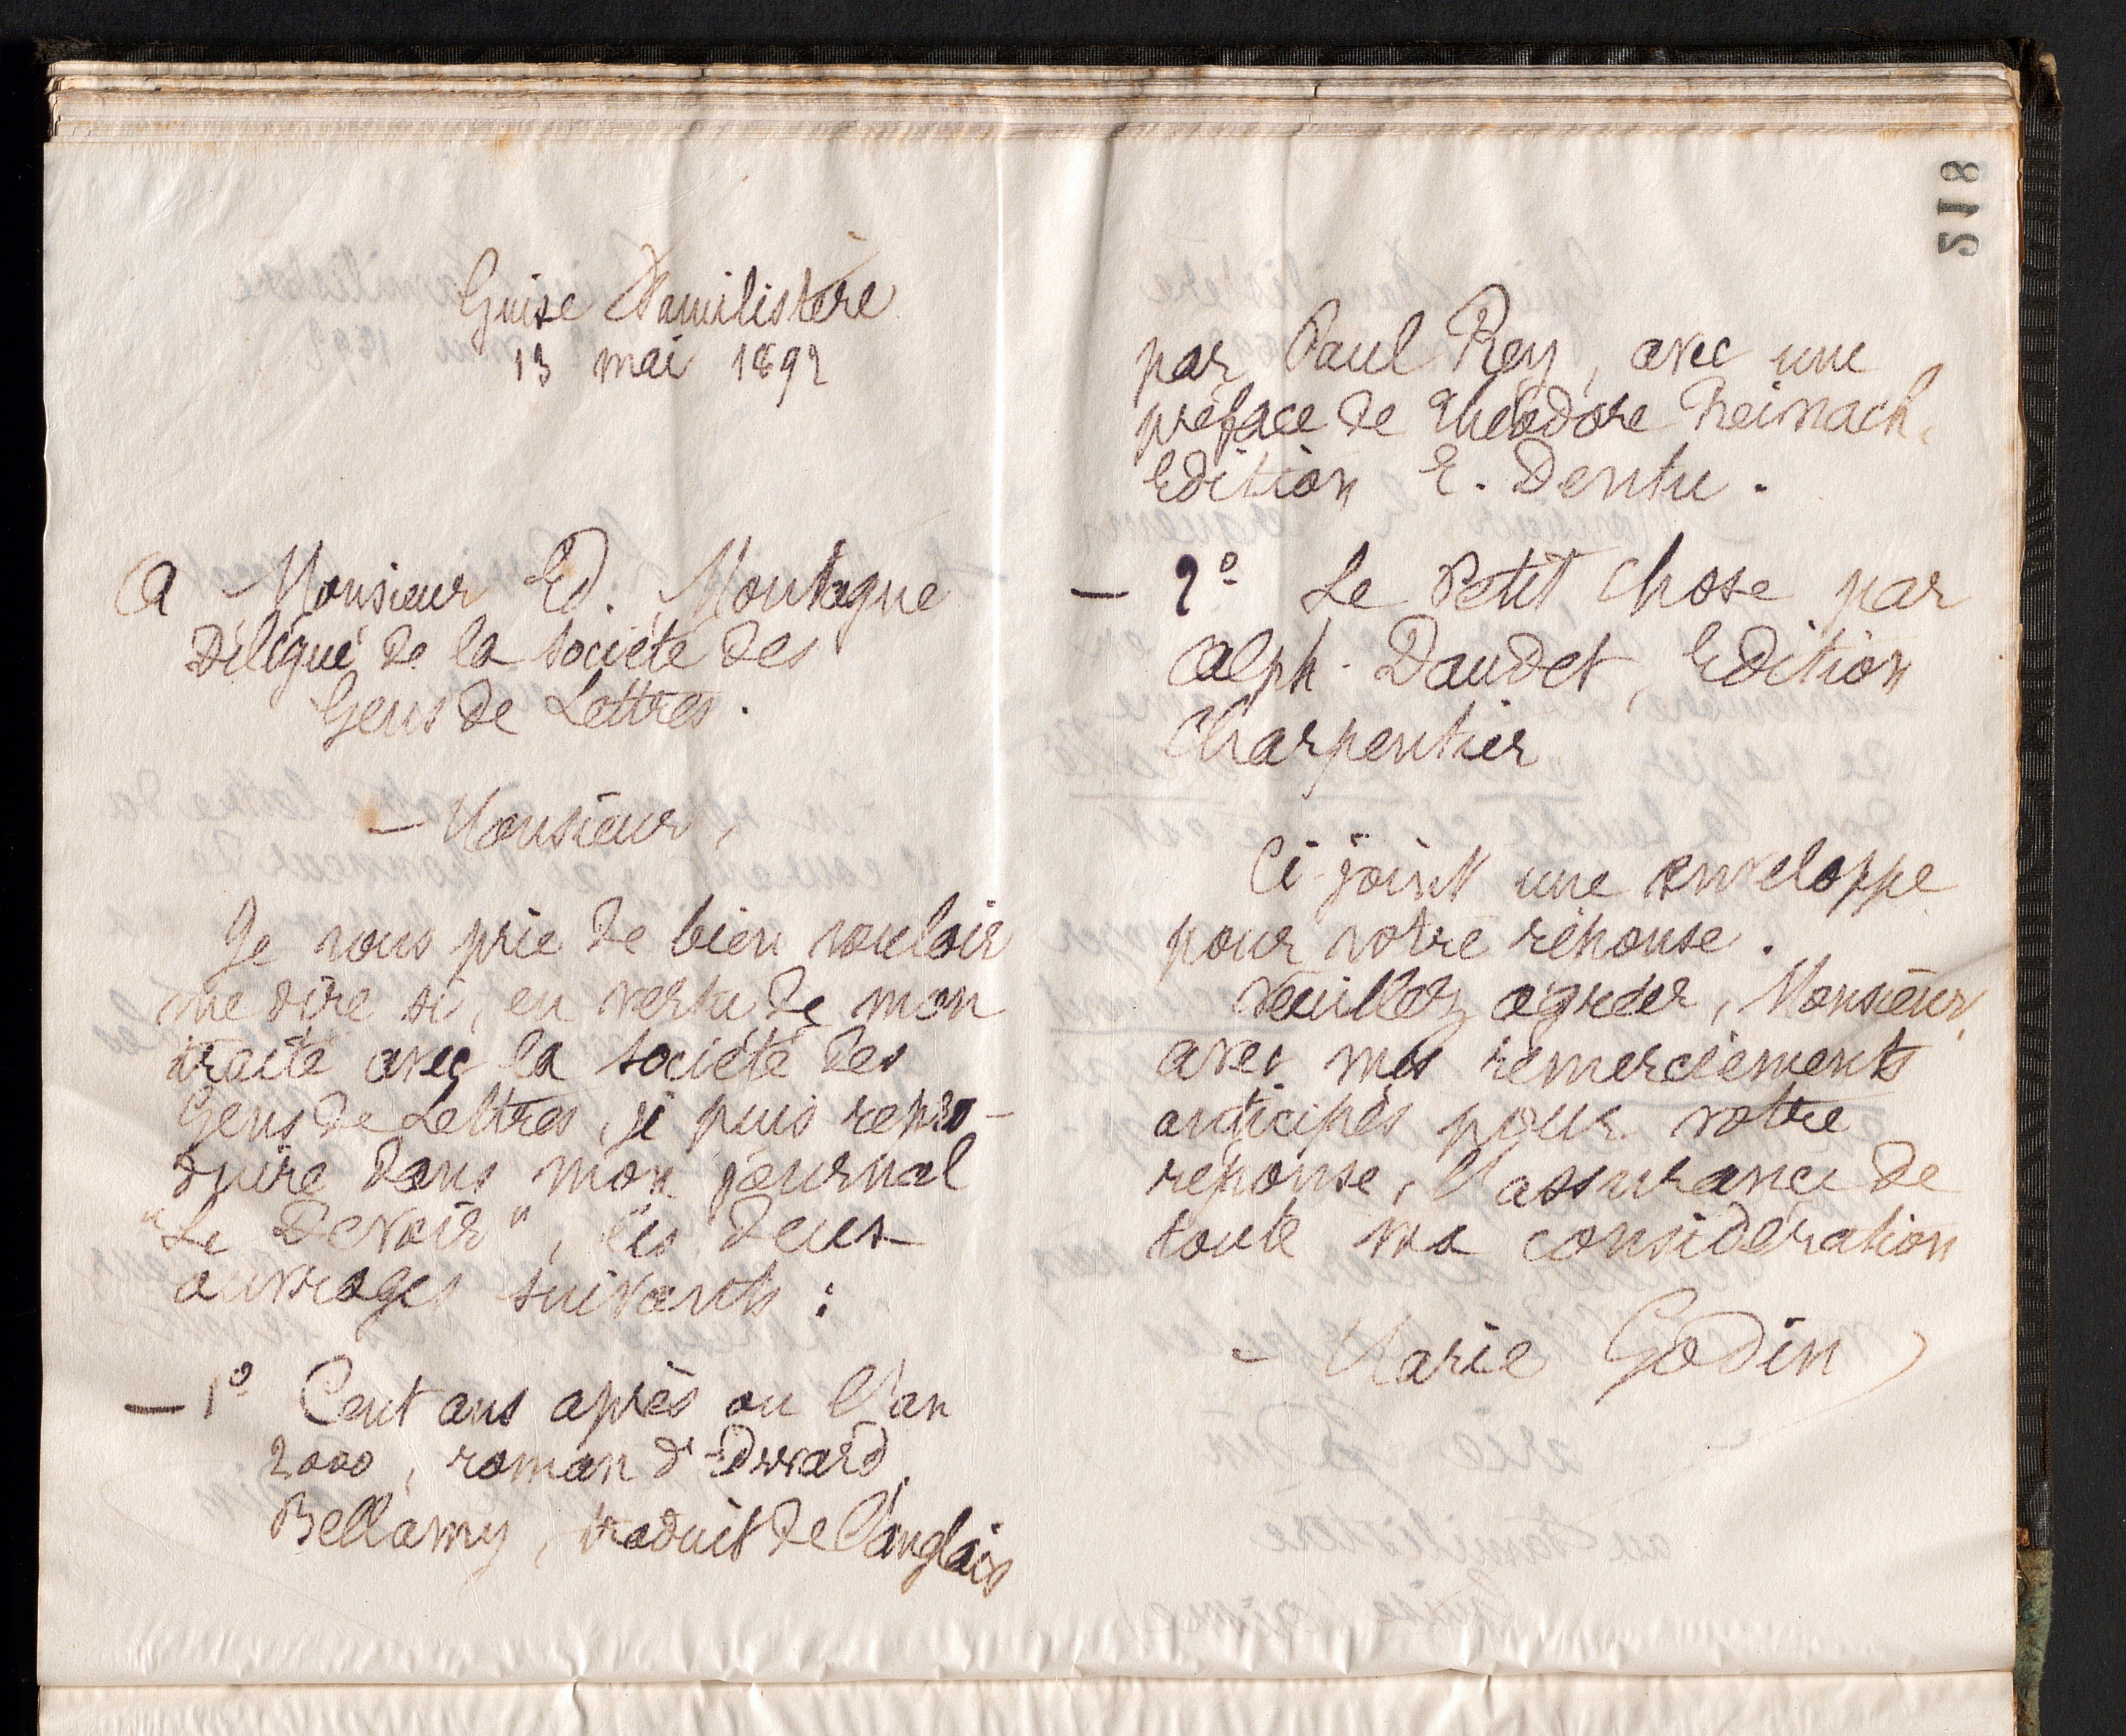 Guise Familistère
13 mai 1892
A Monsieur Ed. Montagne
Délégué de la Société des
Gens de Lettres.
Monsieur,
Je vous prie de bien vouloir
me dire si, en vertu de mon
traité avec la Société des
Gens de Lettres, je puis repro-
duire dans mon journal
"Le Devoir", les deux
ouvrages suivants :
— 1º Cent ans après ou l'an
2000, roman d'Edward
Bellamy, traduit de l'anglais
518
par Paul Rey, avec une
préface de Théodore Reinach.
Edition E. Dentu.
— 2º Le Petit Chose par
Alph. Daudet, Edition
Charpentier
Ci-joint une enveloppe
pour votre réponse.
Veuillez agréer, Monsieur,
avec mes remerciements
anticipés pour votre
réponse, l'assurance de
toute ma considération
Marie Godin